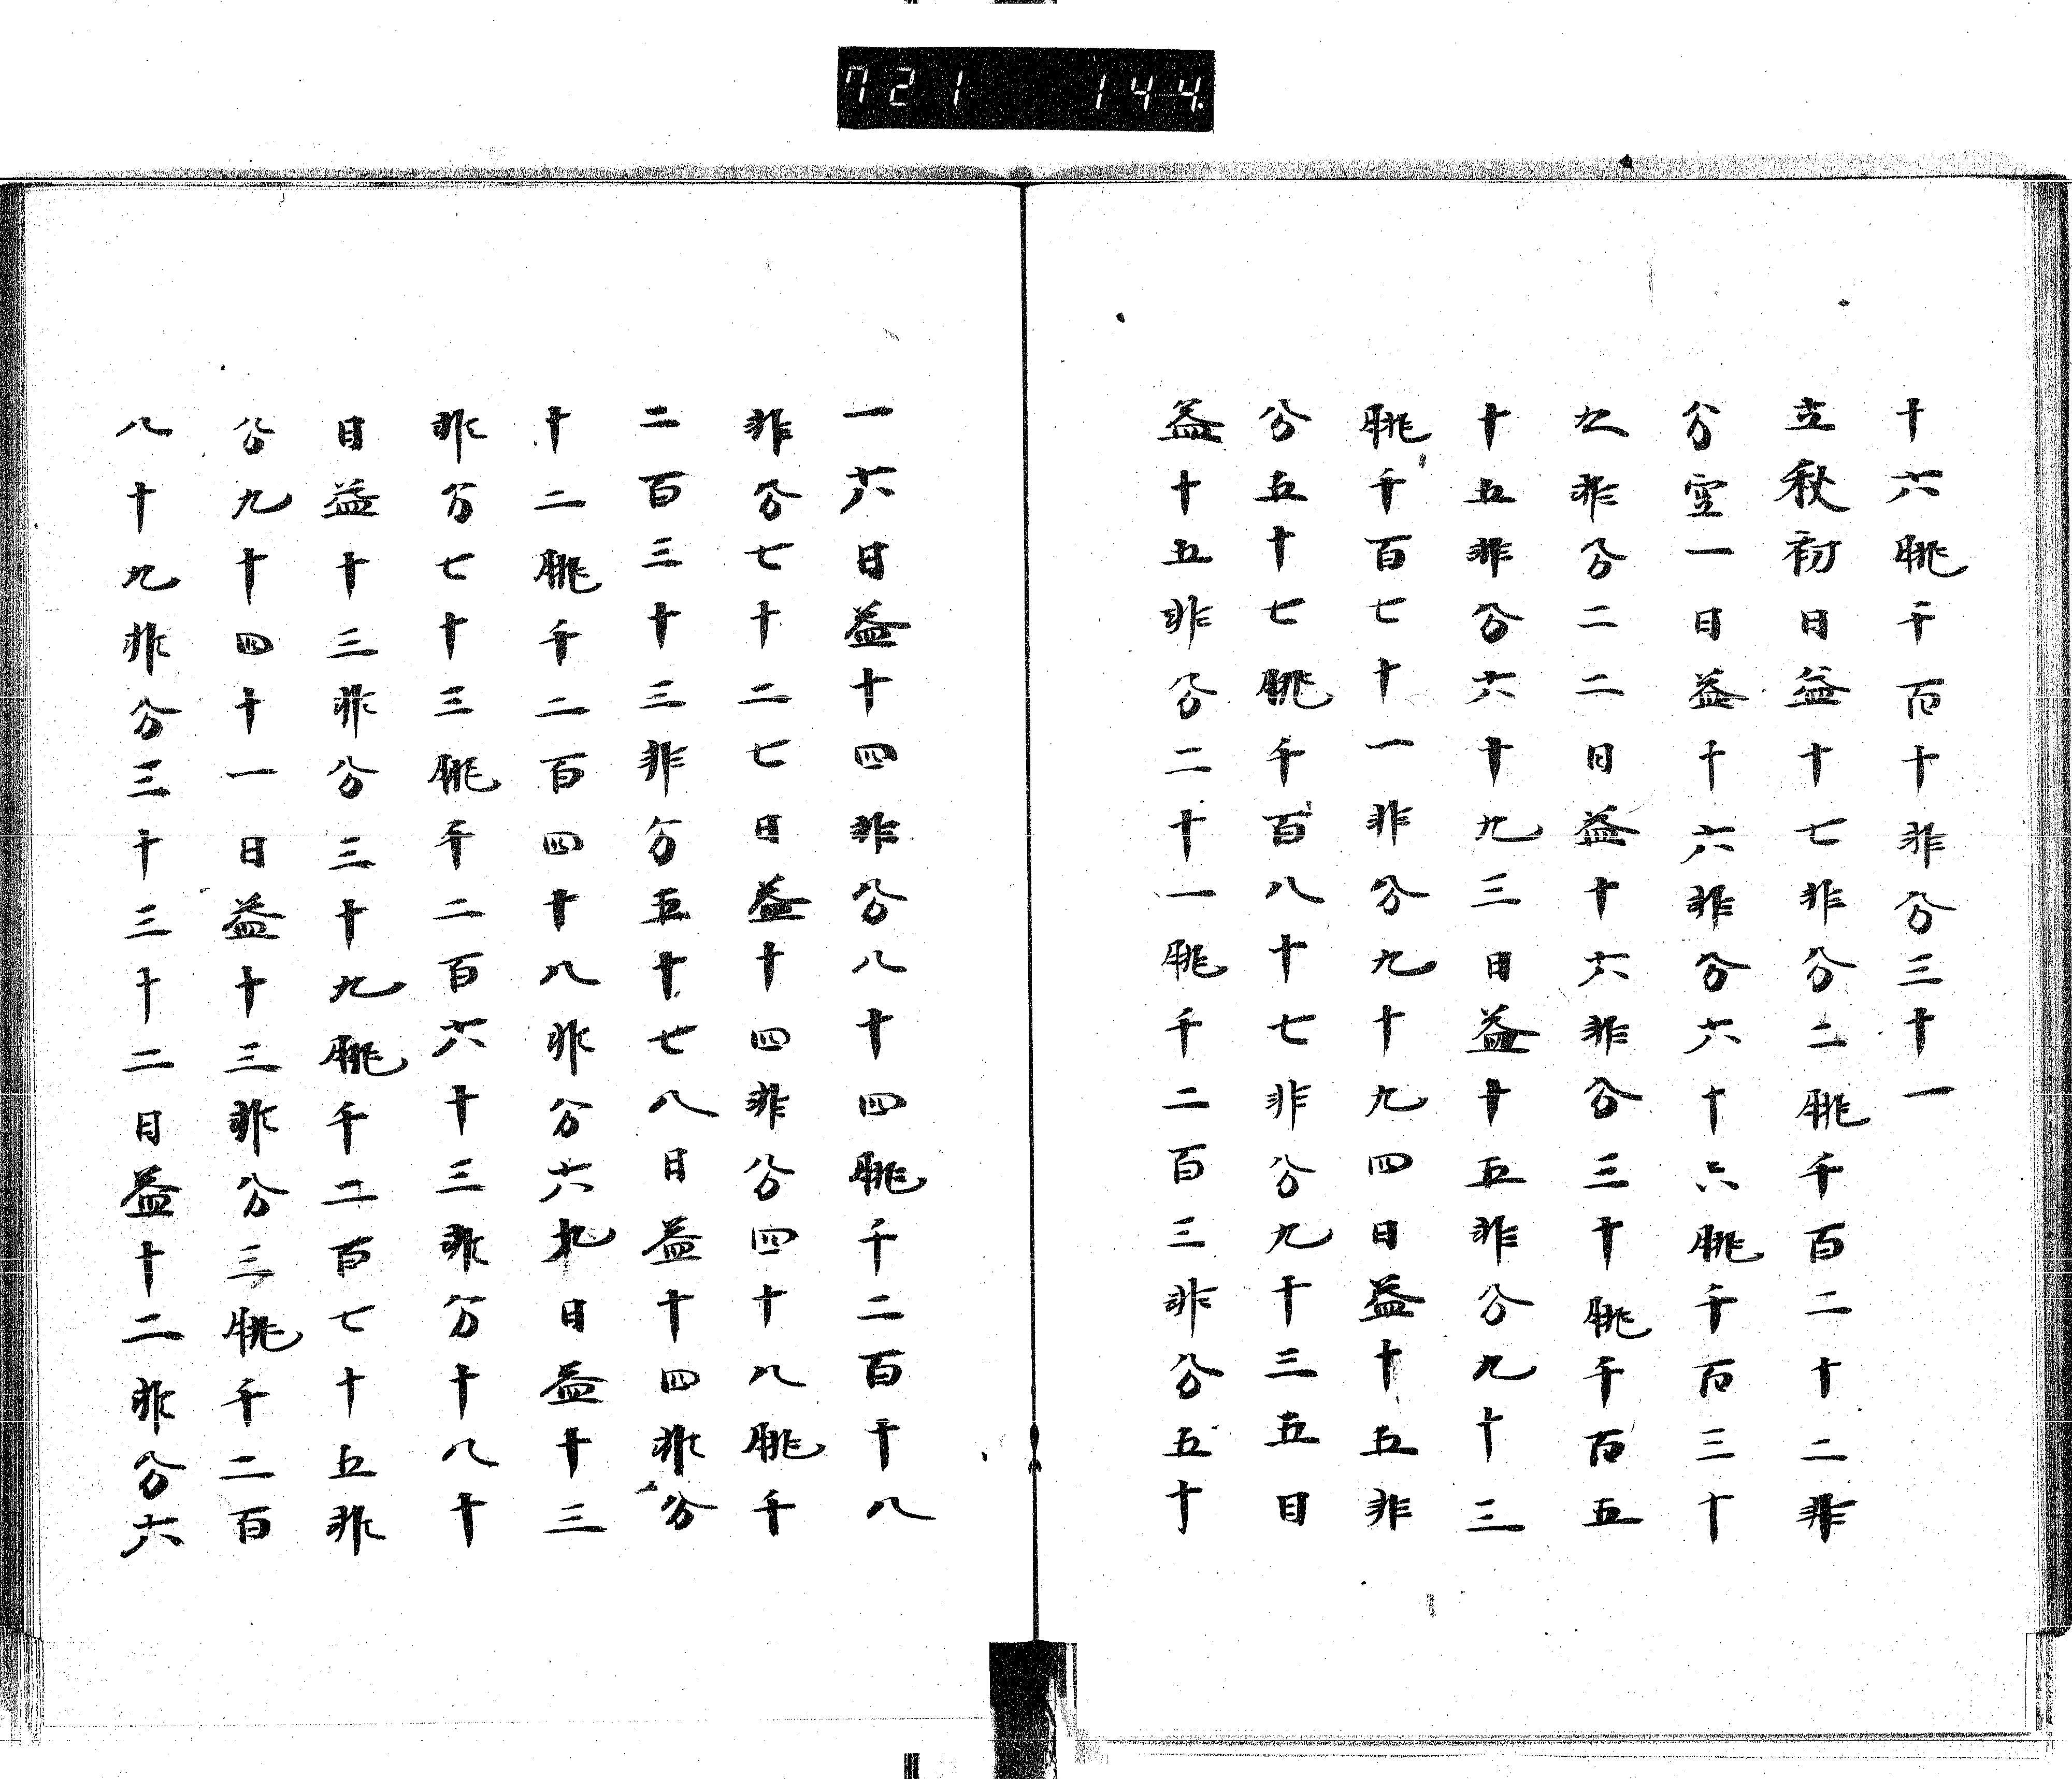 721 144
十六朓千百十非分三十一
立秋初日益十七非分二朓千百二十二非
分空一日益十六非分六十六朓千百三十
九非分二二日益十六非分三十朓千百五
十五非分六十九三日益十五非分九十三
朓千百七十一非分九十九四日益十五非
分五十七朓千百八十七非分九十三五日
益十五非分二十一朓千二百三非分五十
一六日益十四非分八十四朓千二百十八
非分七十二七日益十四非分四十八朓千
二百三十三非分五十七八日益十四非分
十二朓千二百四十八非分六九日益十三
非分七十三朓千二百六十三非分十八十
日益十三非分三十九朓千二百七十五非
分九十四十一日益十三非分三朓千二百
八十九非分三十三十二日益十二非分六